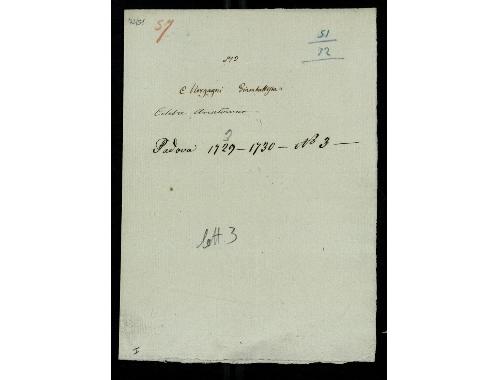 57
51
22
Morgagni Giambattista
Celebre Anatomico
Padova 1729 – 1730 – No 3 —
lett. 3
I